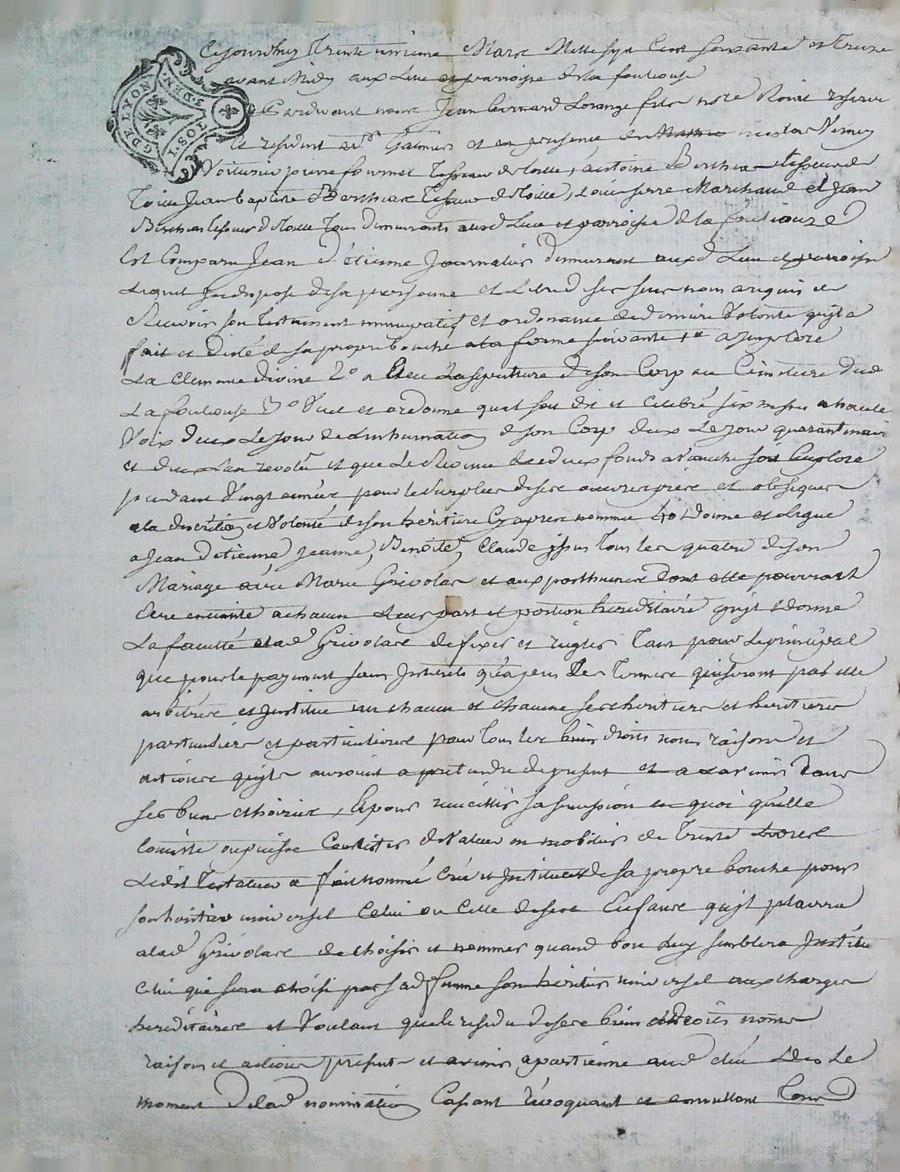 G. DE LYON
3. DEN.
HOS. T
Cejourdhuy Trente unieme Mars Mille sept Cent soixante et Treize
avant Midy aux Lieu et parroisse de la foulouse
Pardevant nous Jean Lorange fils not.re Roial reservé
et resident a S.t Galmier et en presence de
Voiturier pierre fournel Tisseur de toille, antoine Berthea Tisseur de
Toille Jean baptiste Tisseur de Toille, Louis serre Marchand et Jean
Tisseur de toille tous demeurants aud Lieu et parroisse de la fouliouze
Est Comparu Jean d'étienne Journalier demeurant aux d Lieu et parroisse
Lequel de sa personne et Libre de ses sens nous a requis de
Recevoir son Testament nuncupatif et ordonance de derniere Volonté qu'il a
fait et dicté de sa propre bouche a la forme suivante 1.o a Imploré
La Clemence divine 2.o a Eleu La sepulture de son Corp au Cimetiere dud
La fouliouse 3.o Veut et ordonne quil soit dit et celebré six messes a haute
Voix deux Le jour de Linhumation de son Corp deux Le jour quarantain
et deux Lan revolu et que Le Revenu de deux fonds soit Employé
pendant Vingt année pour de ses prieres et obseques
a la discretion et Volonté de son heritiere Cy apres nommée 4.o Donne et Legue
a Jean d'etienne, Jeanne, Benoite, Claude issus tous les quatre de son
Mariage avec Marie Grivolas et aux posthumes dont elle pourroit
Etre enceinte a chacun Leur part et portion hereditaire qu'il donne
La faculté a lad Grivolas de fixer et regler Tant pour Le principal
que pour le payement sans Interets qu'a Les Termes qui seront par elle
arbitrés et Institue un chacun et chacune ses heritiers et heritieres
particuliers et particulieres pour tous les biens droits noms raisons et
actions qu'ils auroient a pretendre de present et a l'avenir dans
ses biens et hoirie, Et pour receuillir sa succession en quoi qu'elle
Consiste ou puisse Consister de Valeur en mobilier de trente Livres
Ledit Testateur a fait nommé Créé et Institué de sa propre bouche pour
son heritier universel Celui ou Celle de ses Enfans qu'il plairra
a lad Grivolas de choisir et nommer quand bon Luy semblera Institue
Celui que sera choisi par sad femme son heritier universel aux charges
hereditaires et Voulant que le residu de ses biens droits noms
raisons et actions presents et avenir apartienne aud élu Des Le
moment de lad nomination Cassant révoquant et annullant tous